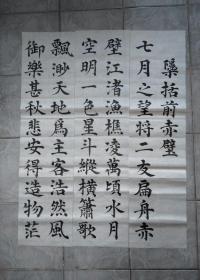 檃括前赤壁
七月之望将二友扁舟赤
壁江渚漁樵凌萬頃水月
空明一色星斗縱橫簫歌
飄渺天地爲主客浩然風
御樂甚秋悲安得造物茫